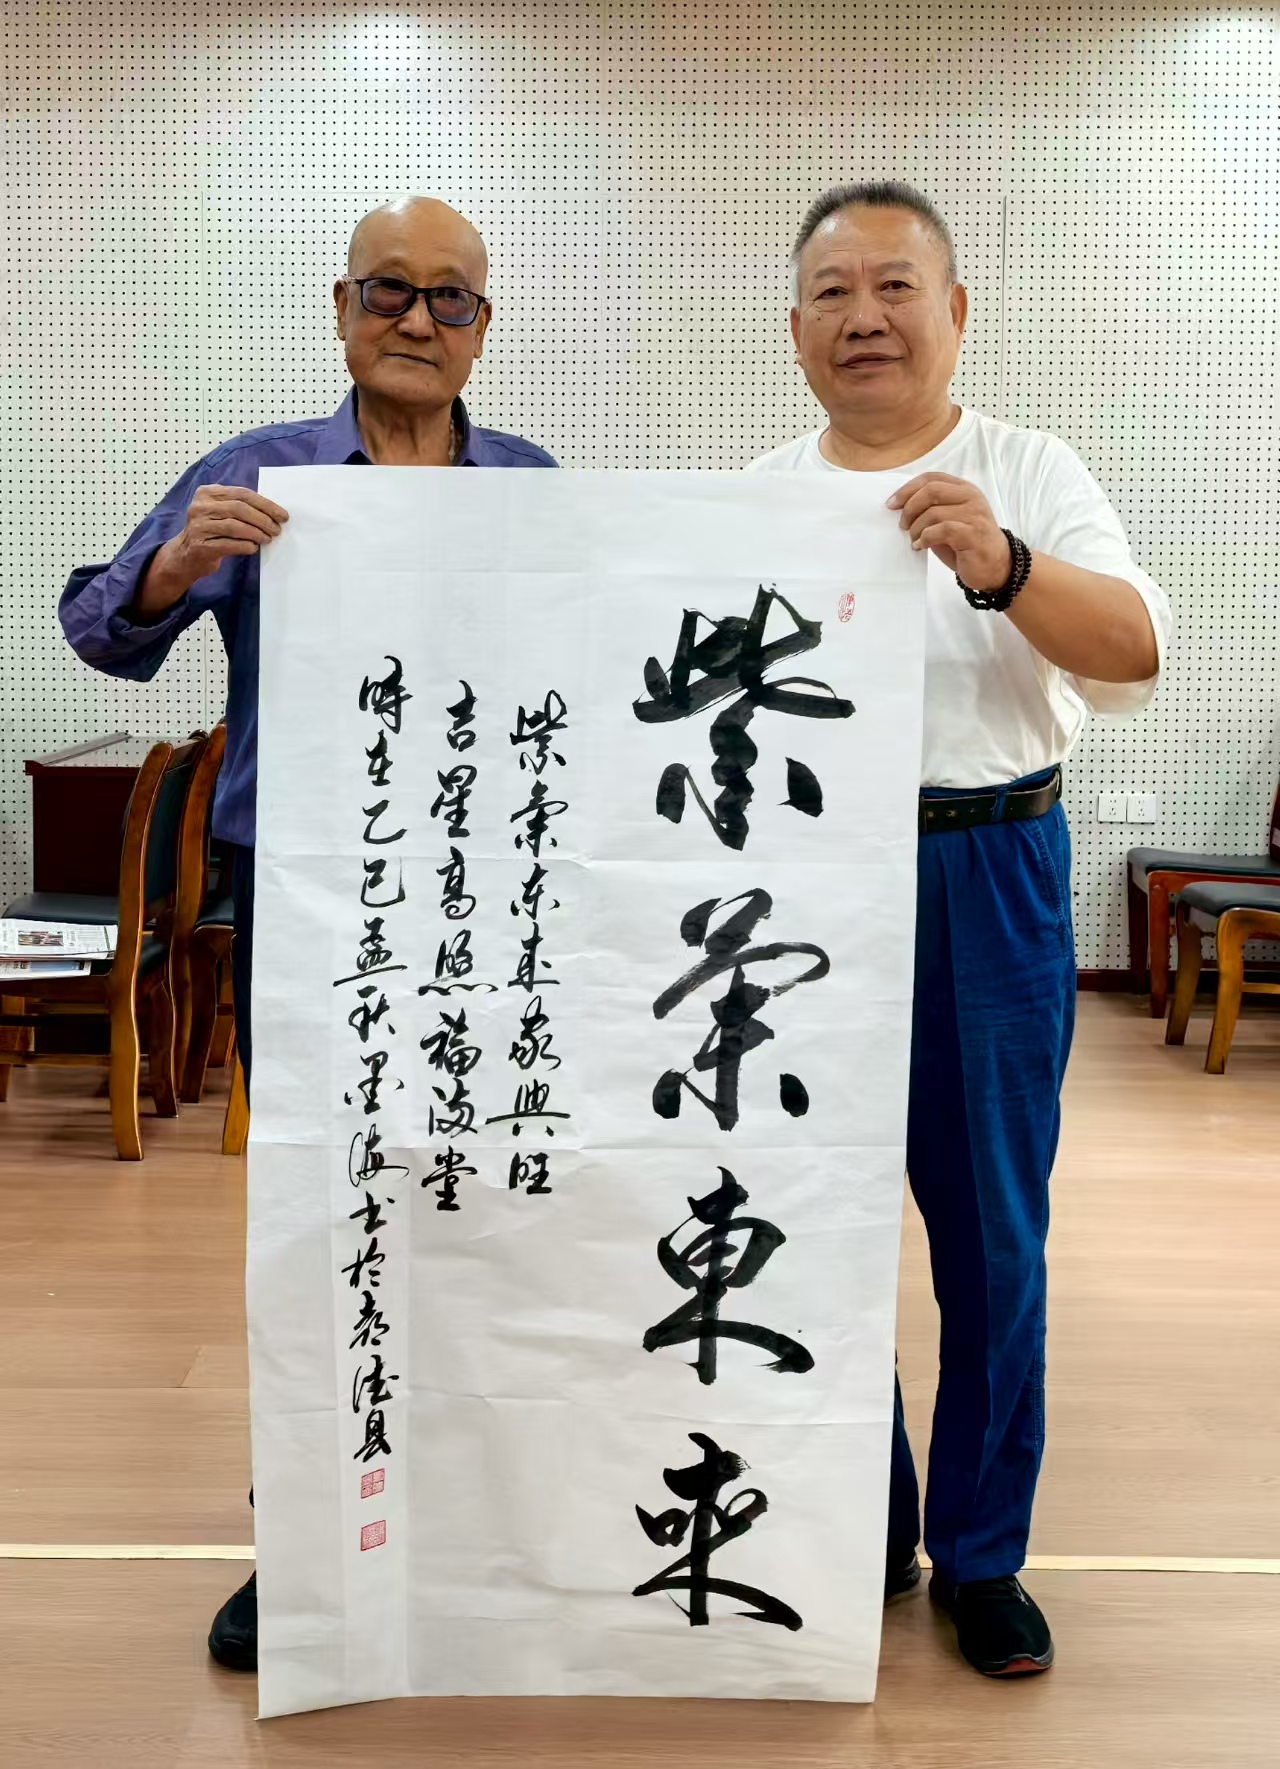 紫氣東來
紫氣东来家興旺
吉星高照福满堂
時在乙巳孟秋墨海书於